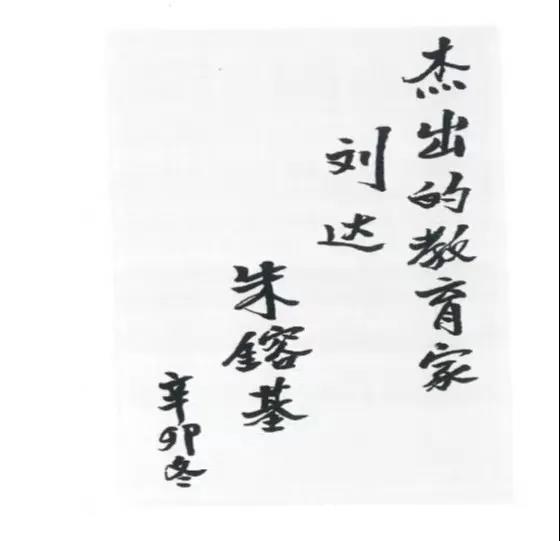 杰出的教育家
刘达
朱鎔基
辛卯冬